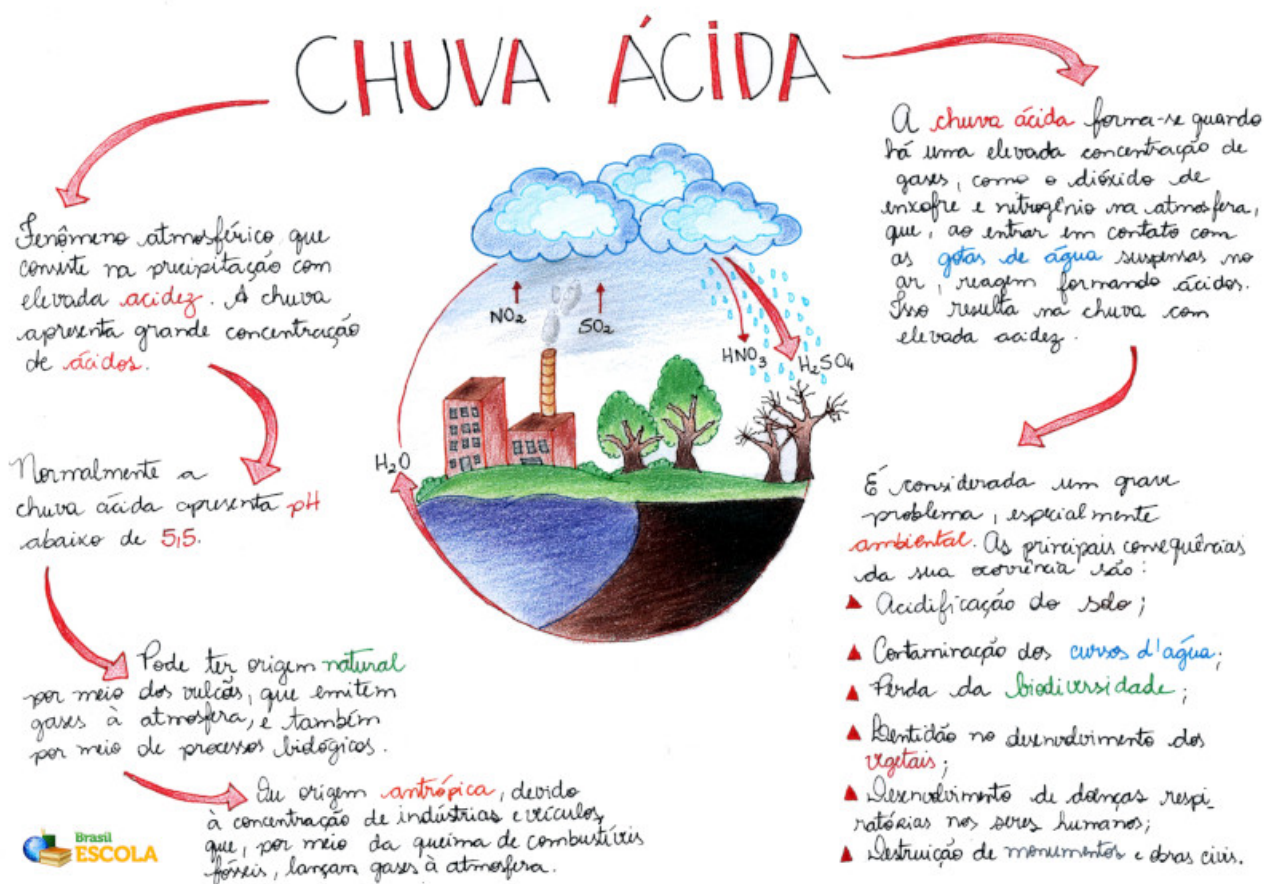 CHUVA ÁCIDA
Fenômeno atmosférico que
consiste na precipitação com
elevada acidez. A chuva
apresenta grande concentração
de ácidos.
Normalmente a
chuva ácida apresenta pH
abaixo de 5,5.
Pode ter origem natural
por meio dos vulcões, que emitem
gases à atmosfera, e também
por meio de processos biológicos.
Ou origem antrópica, devido
à concentração de indústrias e veículos,
que, por meio da queima de combustíveis
fósseis, lançam gases à atmosfera.
NO₂
SO₂
HNO₃
H₂SO₄
H₂O
A chuva ácida forma-se quando
há uma elevada concentração de
gases, como o dióxido de
enxofre e nitrogênio na atmosfera,
que, ao entrar em contato com
as gotas de água suspensas no
ar, reagem formando ácidos.
Isso resulta na chuva com
elevada acidez.
É considerada um grave
problema, especialmente
ambiental. As principais consequências
da sua ocorrência são:
Acidificação do solo;
Contaminação dos cursos d'água;
Perda da biodiversidade;
Lentidão no desenvolvimento dos
vegetais;
Desenvolvimento de doenças respi-
ratórias nos seres humanos;
Destruição de monumentos e obras civis.
Brasil
ESCOLA